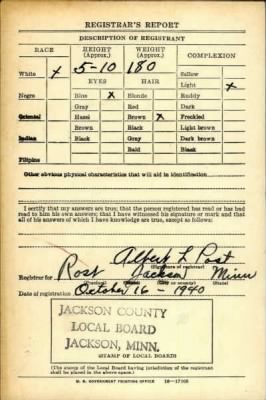 REGISTRAR'S REPORT
DESCRIPTION OF REGISTRANT
RACE HEIGHT (Approx.) WEIGHT (Approx.) COMPLEXION
5-10 180
White x EYES HAIR Sallow
Light x
Negro Blue x Blonde Ruddy
Gray Red Dark
Oriental Hazel Brown x Freckled
Brown Black Light brown
Indian Black Gray Dark brown
Bald Black
Filipino
Other obvious physical characteristics that will aid in identification
I certify that my answers are true; that the person registered has read or has had
read to him his own answers; that I have witnessed his signature or mark and that
all of his answers of which I have knowledge are true, except as follows:
Albert L Post
(Signature of registrar)
Registrar for Rost Jackson Minn
(City or county) (State)
Date of registration October 16 - 1940
JACKSON COUNTY
LOCAL BOARD
JACKSON, MINN.
(STAMP OF LOCAL BOARD)
(The stamp of the Local Board having jurisdiction of the registrant
shall be placed in the above space.)
U. S. GOVERNMENT PRINTING OFFICE 16-17105